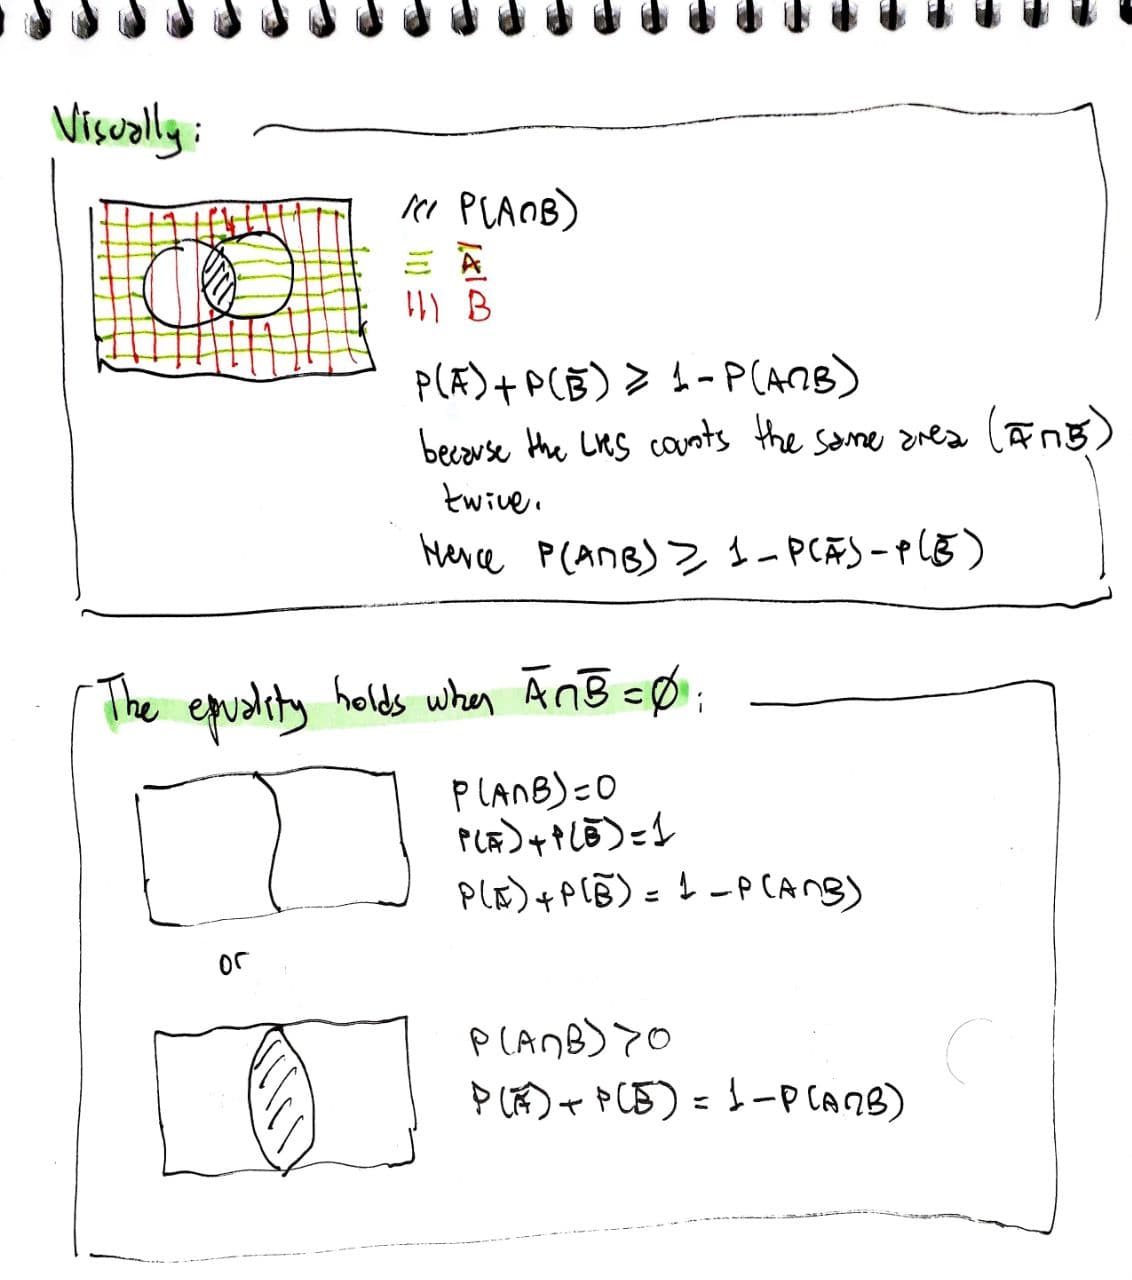 Visually:
P(A∩B)
A̅
B̅
P(A̅)+P(B̅) ⩾ 1-P(A∩B)
because the LHS counts the same area (A̅∩B̅)
twice.
Hence P(A∩B) ⩾ 1-P(A̅)-P(B̅)
The equality holds when A̅∩B̅=∅:
P(A∩B)=0
P(A̅)+P(B̅)=1
P(A̅)+P(B̅) = 1-P(A∩B)
or
P(A∩B)>0
P(A̅)+P(B̅) = 1-P(A∩B)